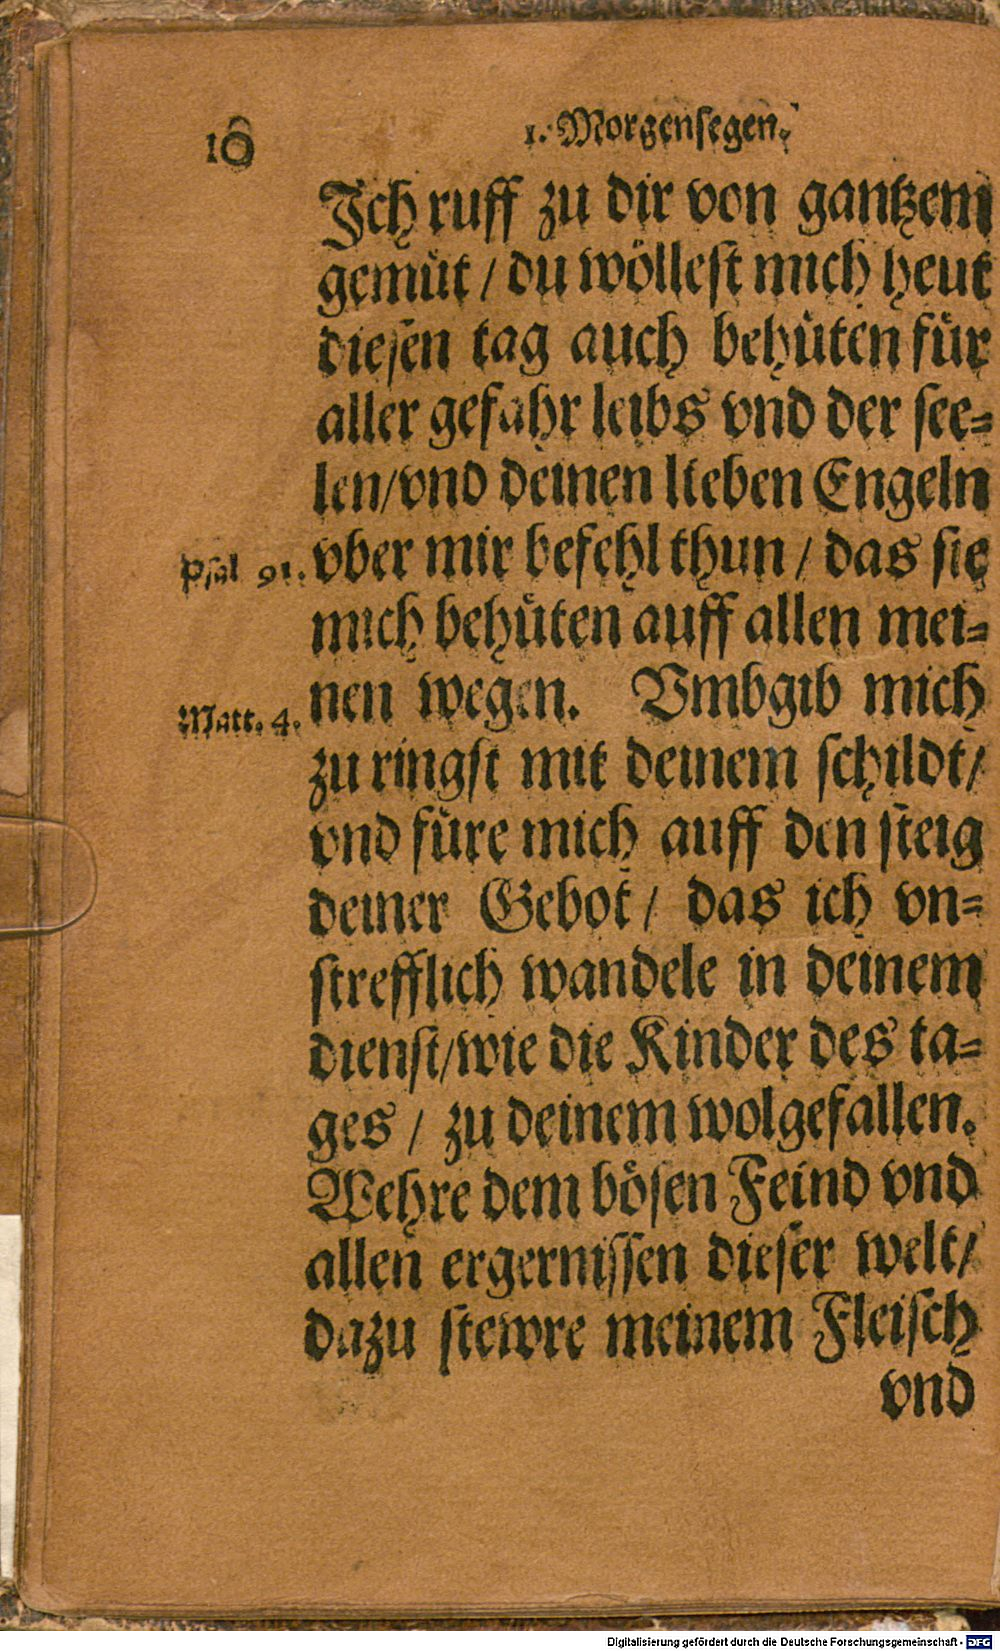 10
1. Morgensegen.
Ich ruff zu dir von gantzem
gemüt / du wöllest mich heut
diesen tag auch behüten für
aller gefahr leibs vnd der see=
len/vnd deinen lieben Engeln
Psal 91. vber mir befehl thun / das sie
mich behüten auff allen mei=
Matt. 4. nen wegen. Vmbgib mich
zu ringst mit deinem schildt/
vnd füre mich auff den steig
deiner Gebot / das ich vn=
strefflich wandele in deinem
dienst/wie die Kinder des ta=
ges / zu deinem wolgefallen.
Wehre dem bösen Feind vnd
allen ergernissen dieser welt/
dazu stewre meinem Fleisch
vnd
Digitalisierung gefördert durch die Deutsche Forschungsgemeinschaft - DFG